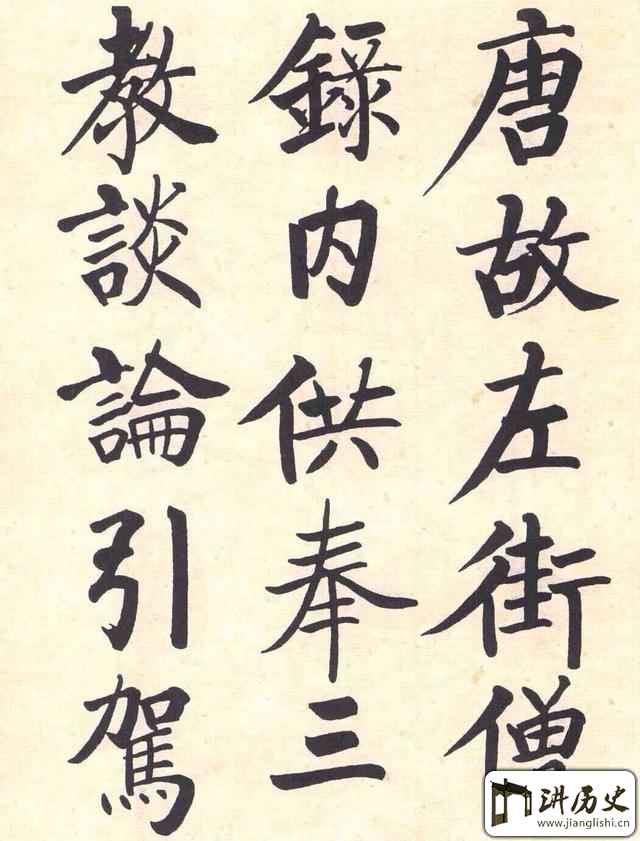 唐故左街僧
錄内供奉三
教談論引駕
讲历史
www.jianglishi.cn